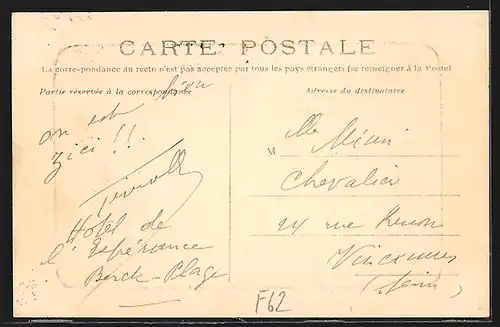 CARTE POSTALE
La correspondance au recto n'est pas acceptée par tous les pays étrangers (se renseigner à la Poste)
Partie réservée à la correspondance
Adresse du destinataire
on est bien
ici !!
Hotel de
l'Espérance
Berck-Plage
M
Mlle
Chevalier
24 rue
Vincennes
(Seine)
F62